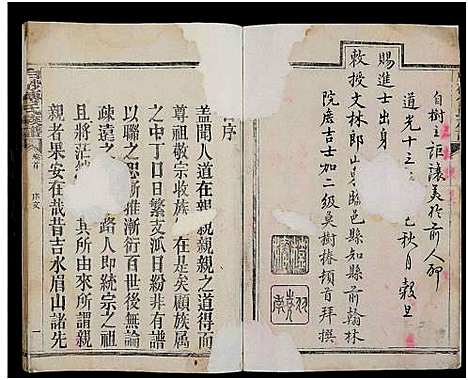 自樹立詎讓美於前人邪
道光十三 巳秋月 穀旦
賜進士出身
敕授文林郎山東臨邑縣知縣前翰林
院庶吉士加二級吳樹椿頓首拜撰
序
蓋聞人道在親親親之道得而
尊祖敬宗收族 在是矣顧族屬
之中丁口日繁支派日紛非有譜
以聯之恐漸推漸衍百世後無論
疎遠之 路人即統宗之
且將茫 其所由來所謂親
親者果安在哉昔吉水眉山諸先
卷首
序文
一